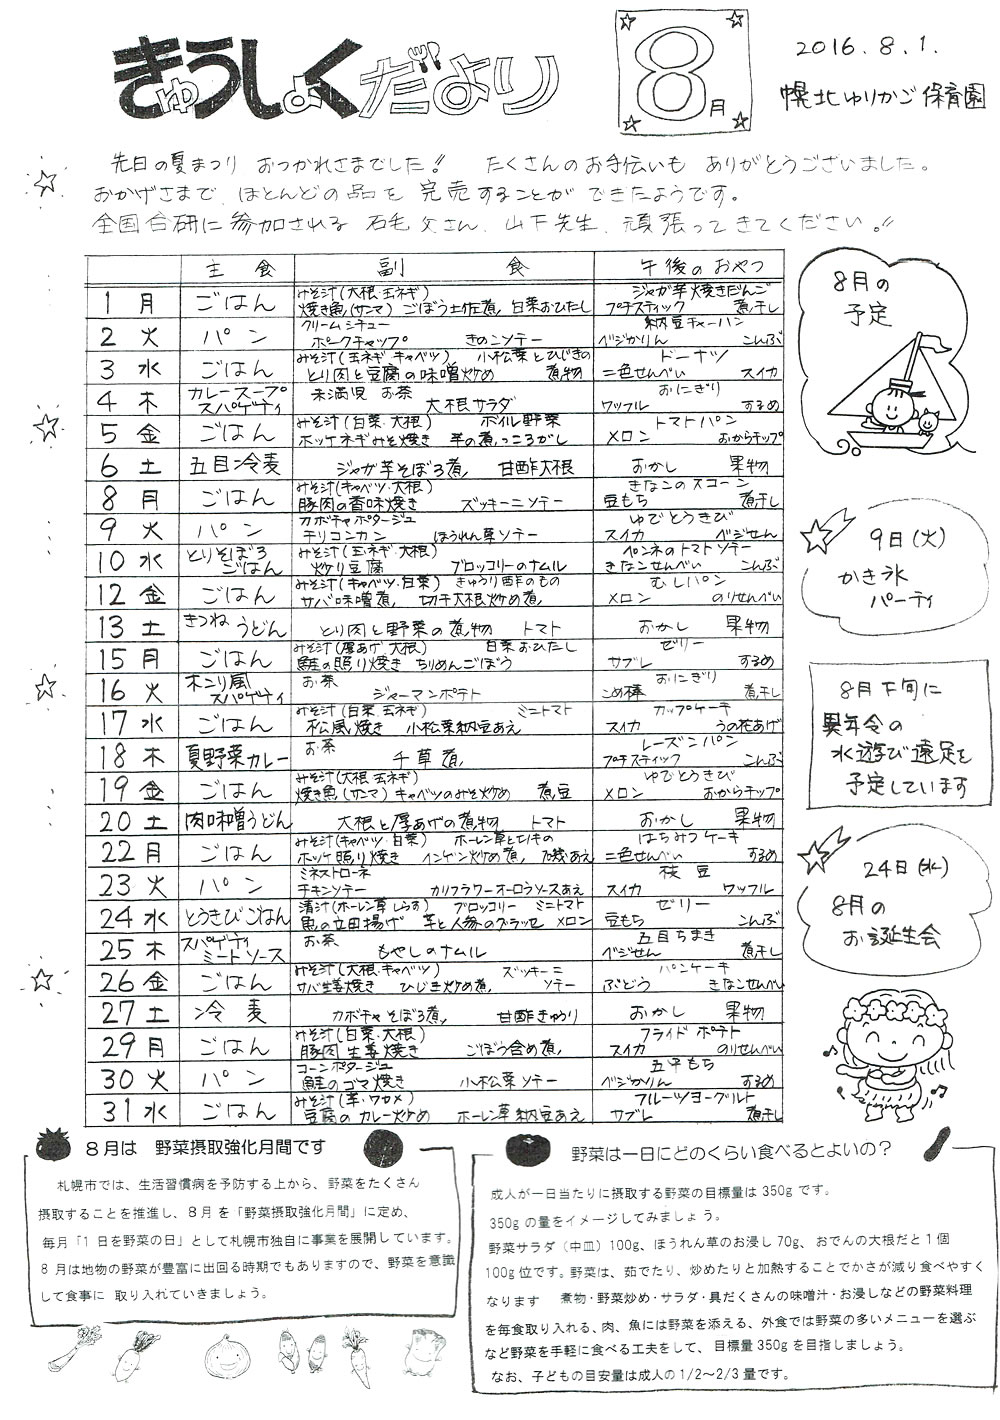 きゅうしょくだより
8月
2016.8.1.
幌北ゆりかご保育園
先日の夏まつり おつかれさまでした!! たくさんのお手伝いも ありがとうございました。
おかげさまで、ほとんどの品を 完売することが できたようです。
全国合研に参加される 石毛父さん、山下先生、頑張ってきてください。!!
主 食 副 食 午後のおやつ
1 月 ごはん みそ汁(大根・玉ネギ) 焼き魚(サンマ) ごぼう土佐煮 白菜おひたし ジャガ芋焼きだんご プチスティック 煮干し
2 火 パン クリームシチュー ポークチャップ きのこソテー 納豆チャーハン ベジかりん こんぶ
3 水 ごはん みそ汁(玉ネギ・キャベツ) 小松菜とひじきの煮物 とり肉と豆腐の味噌炒め ドーナツ 二色せんべい スイカ
4 木 カレースープスパゲティ 未満児 お茶 大根サラダ おにぎり ワッフル するめ
5 金 ごはん みそ汁(白菜・大根) ボイル野菜 ホッケネギみそ焼き 芋の煮っころがし トマトパン メロン おからチップ
6 土 五目冷麦 ジャガ芋そぼろ煮 甘酢大根 おかし 果物
8 月 ごはん みそ汁(キャベツ・大根) 豚肉の香味焼き ズッキーニソテー きなこのスコーン 豆もち 煮干し
9 火 パン カボチャポタージュ チリコンカン ほうれん草ソテー ゆでとうきび スイカ ベジせん
10 水 とりそぼろごはん みそ汁(玉ネギ・大根) 炒り豆腐 ブロッコリーのナムル ペンネのトマトソテー きなこせんべい こんぶ
12 金 ごはん みそ汁(キャベツ・白菜) きゅうり酢のもの サバ味噌煮 切干大根炒め煮 むしパン メロン のりせんべい
13 土 きつねうどん とり肉と野菜の煮物 トマト おかし 果物
15 月 ごはん みそ汁(厚あげ・大根) 白菜おひたし 鮭の照り焼き ちりめんごぼう ゼリー サブレ するめ
16 火 ナポリ風スパゲティ お茶 ジャーマンポテト おにぎり こめ棒 煮干し
17 水 ごはん みそ汁(白菜・玉ネギ) ミニトマト 松風焼き 小松菜納豆あえ カップケーキ スイカ うの花あげ
18 木 夏野菜カレー お茶 千草煮 レーズンパン プチスティック こんぶ
19 金 ごはん みそ汁(大根・玉ネギ) 焼き魚(サンマ) キャベツのみそ炒め 煮豆 ゆでとうきび メロン おからチップ
20 土 肉味噌うどん 大根と厚あげの煮物 トマト おかし 果物
22 月 ごはん みそ汁(キャベツ・白菜) ホーレン草とエノキの ホッケ照り焼き インゲン炒め煮 はちみつケーキ 二色せんべい するめ
23 火 パン ミネストローネ チキンソテー カリフラワーオーロラソースあえ 枝豆 スイカ ワッフル
24 水 とうきびごはん 清汁(ホーレン草・しらす) ブロッコリー ミニトマト 魚の立田揚げ 芋と人参のグラッセ メロン ゼリー 豆もち こんぶ
25 木 スパゲティミートソース お茶 もやしのナムル 五目ちまき ベジせん 煮干し
26 金 ごはん みそ汁(大根・キャベツ) ズッキーニソテー サバ生姜焼き ひじき炒め煮 パンケーキ ぶどう きなこせんべい
27 土 冷麦 カボチャそぼろ煮 甘酢きゅうり おかし 果物
29 月 ごはん みそ汁(白菜・大根) 豚肉生姜焼き ごぼう含め煮 フライドポテト スイカ のりせんべい
30 火 パン コーンポタージュ 鮭のゴマ焼き 小松菜ソテー 五平もち ベジかりん するめ
31 水 ごはん みそ汁(芋・ワカメ) 豆腐のカレー炒め ホーレン草納豆あえ フルーツヨーグルト サブレ 煮干し
8月の
予定
9日(火)
かき氷
パーティ
8月下旬に
異年令の
水遊び遠足を
予定しています
24日(水)
8月の
お誕生会
8月は 野菜摂取強化月間です
札幌市では、生活習慣病を予防する上から、野菜をたくさん
摂取することを推進し、8月を「野菜摂取強化月間」に定め、
毎月「1日を野菜の日」として札幌市独自に事業を展開しています。
8月は地物の野菜が豊富に出回る時期でもありますので、野菜を意識
して食事に 取り入れていきましょう。
野菜は一日にどのくらい食べるとよいの?
成人が一日当たりに摂取する野菜の目標量は350gです。
350gの量をイメージしてみましょう。
野菜サラダ(中皿)100g、ほうれん草のお浸し70g、おでんの大根だと1個
100g位です。野菜は、茹でたり、炒めたりと加熱することでかさが減り食べやすく
なります 煮物・野菜炒め・サラダ・具だくさんの味噌汁・お浸しなどの野菜料理
を毎食取り入れる、肉、魚には野菜を添える、外食では野菜の多いメニューを選ぶ
など野菜を手軽に食べる工夫をして、目標量350gを目指しましょう。
なお、子どもの目安量は成人の1/2〜2/3量です。